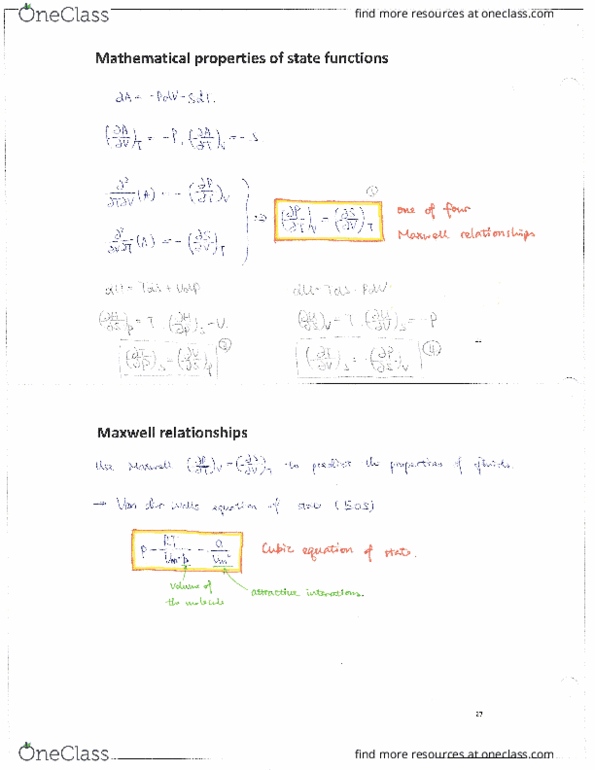 OneClass
find more resources at oneclass.com
Mathematical properties of state functions
dA = -PdV - SdT.
(∂A/∂V)_T = -P, (∂A/∂T)_V = -S
∂²/∂T∂V (A) = -(∂P/∂T)_V
∂²/∂V∂T (A) = -(∂S/∂V)_T
⇒ (∂P/∂T)_V = (∂S/∂V)_T ①
one of four
Maxwell relationships
dH = TdS + VdP
(∂H/∂S)_P = T, (∂H/∂P)_S = V.
(∂T/∂P)_S = (∂V/∂S)_P
dU = TdS - PdV
(∂U/∂S)_V = T, (∂U/∂V)_S = -P
④
Maxwell relationships
Use Maxwell (∂P/∂T)_V = (∂S/∂V)_T to predict the properties of fluids.
→ Van der Waals equation of state (EOS)
Cubic equation of state.
volume of
the molecule
attractive interactions.
27
OneClass
find more resources at oneclass.com